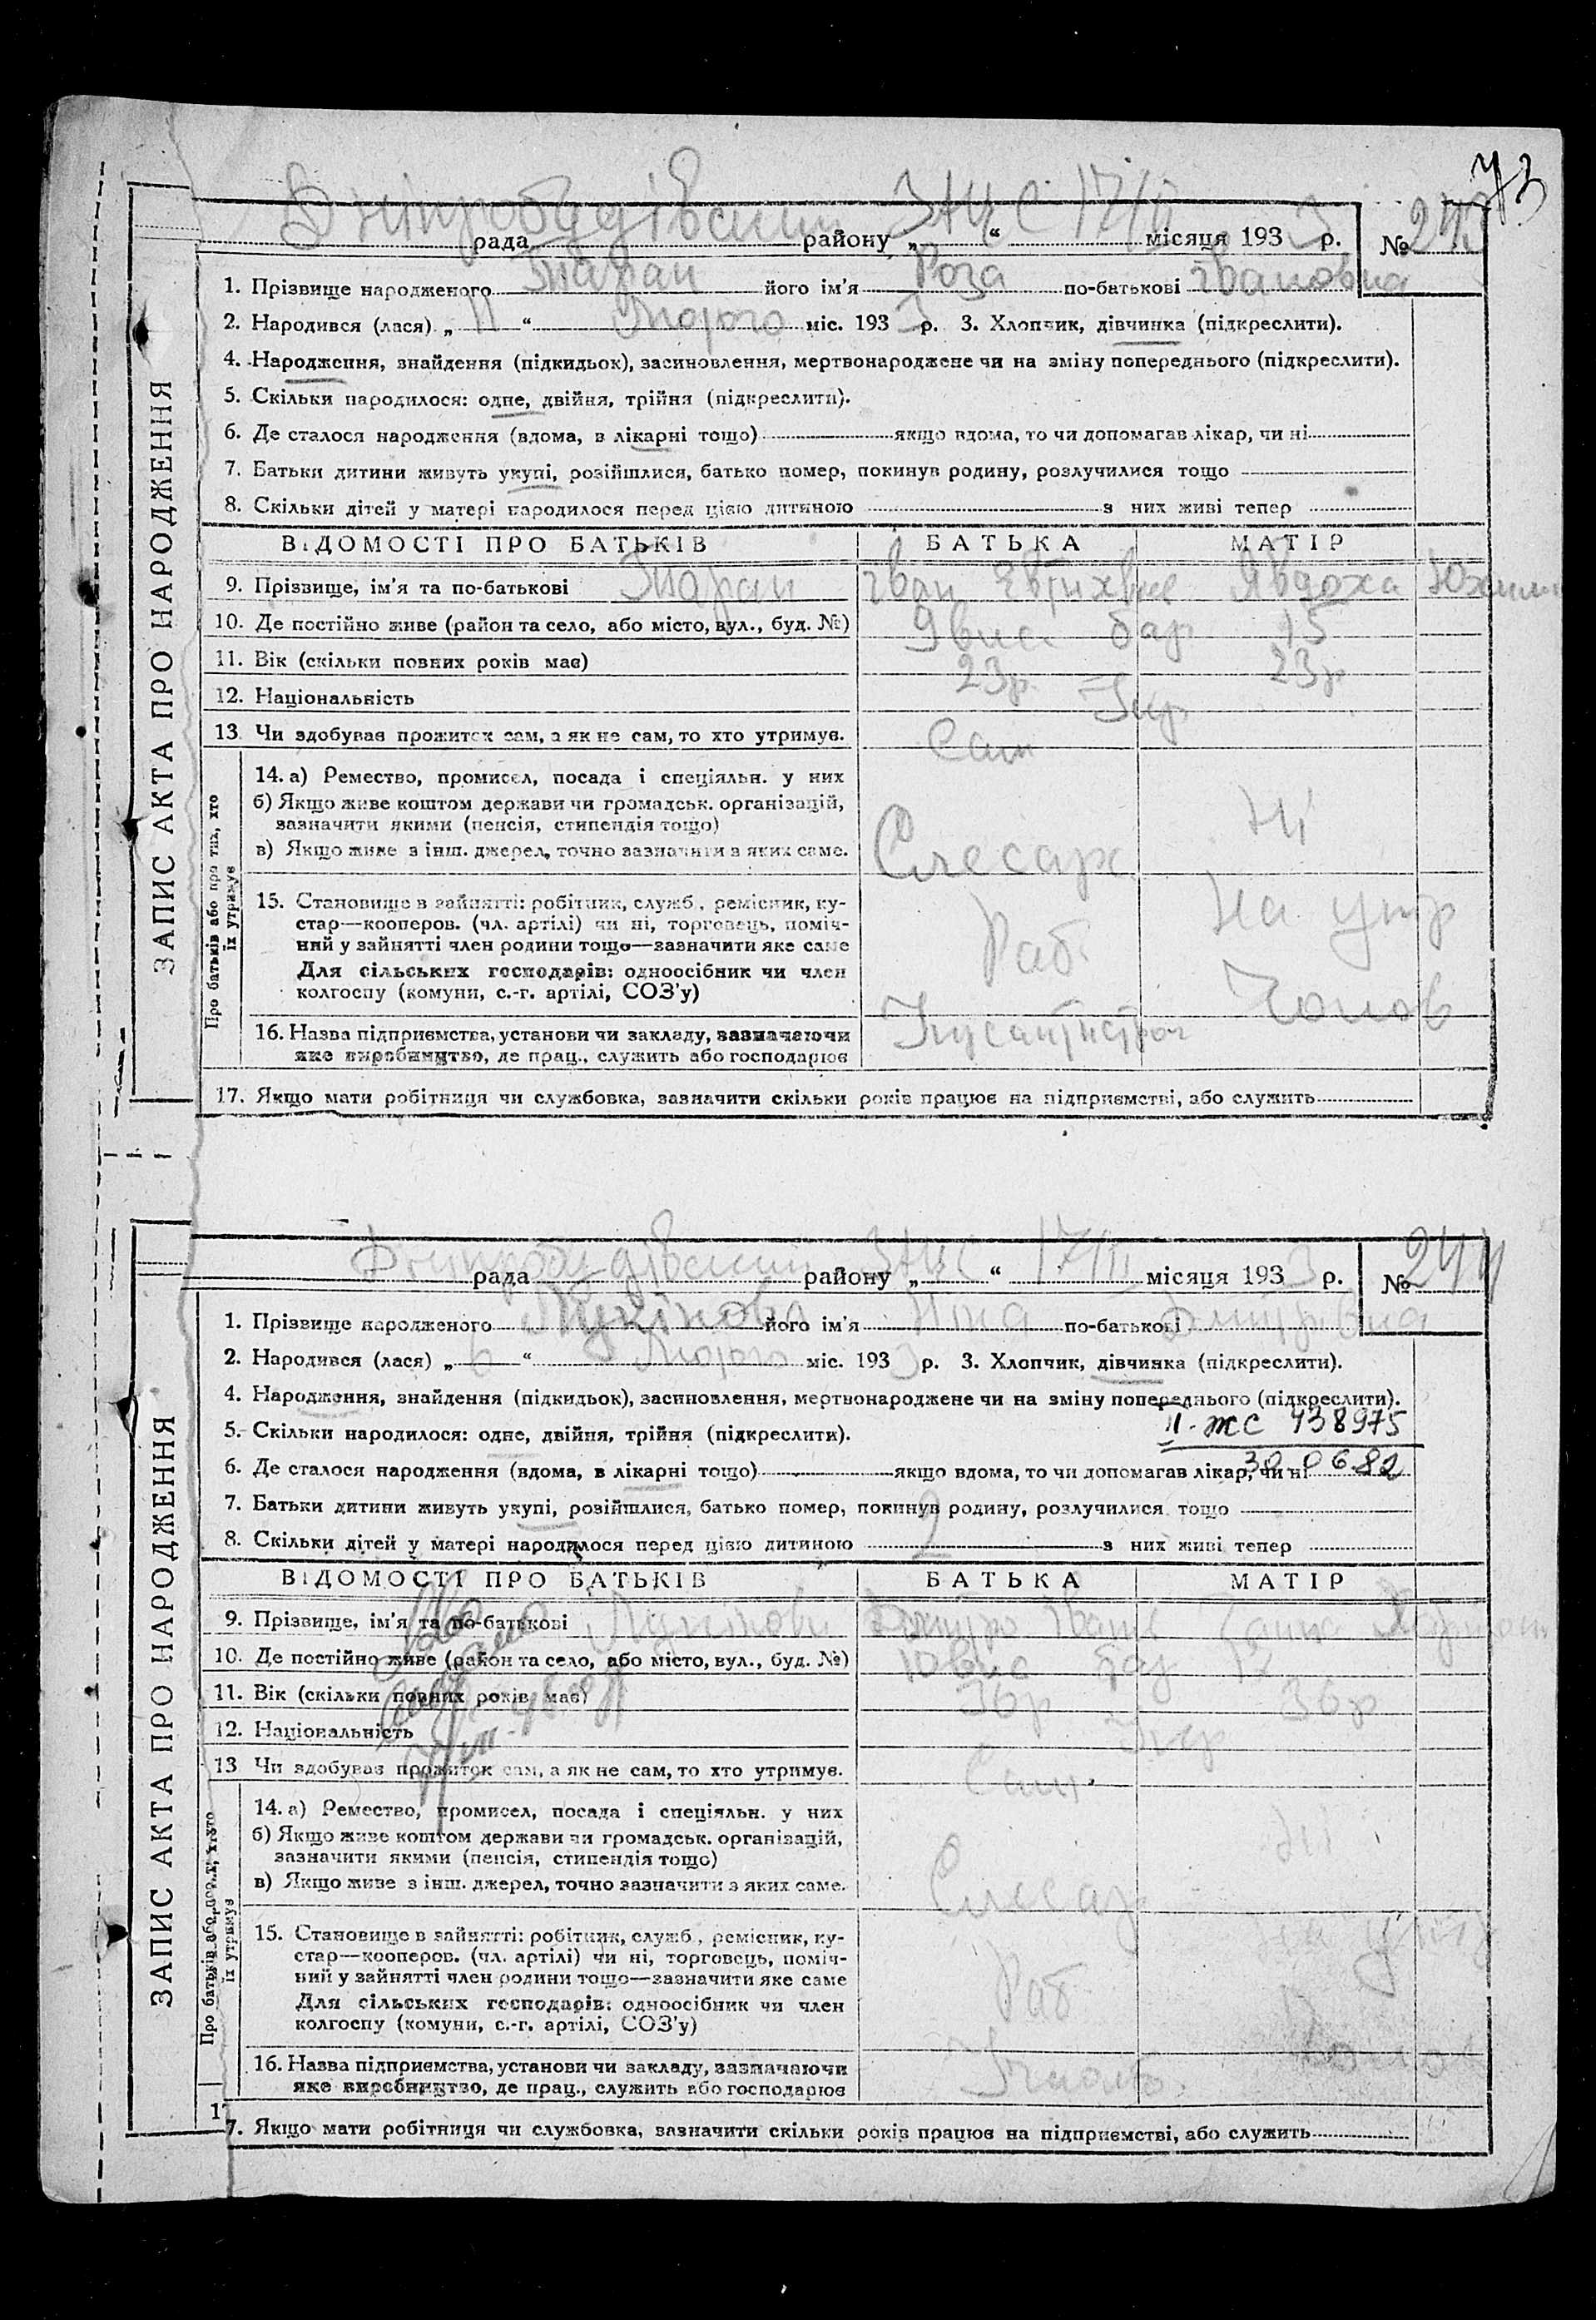 73
Дніпробудівський ЗАЦС 17/III
рада району „ “ місяця 1933 р. № 243
1. Прізвище народженого його ім'я Роза по-батькові Івановна
2. Народився (лася) „11“ Лютого міс. 1933 р. 3. Хлопчик, дівчинка (підкреслити).
4. Народження, знайдення (підкидьок), засиновлення, мертвонароджене чи на зміну попереднього (підкреслити).
5. Скільки народилося: одне, двійня, трійня (підкреслити).
6. Де сталося народження (вдома, в лікарні тощо) якщо вдома, то чи допомагав лікар, чи ні
7. Батьки дитини живуть укупі, розійшлися, батько помер, покинув родину, розлучилися тощо
8. Скільки дітей у матері народилося перед цією дитиною з них живі тепер
ВІДОМОСТІ ПРО БАТЬКІВ БАТЬКА МАТІР
9. Прізвище, ім'я та по-батькові Іван Явдоха
10. Де постійно живе (район та село, або місто, вул., буд. №) бар 15
11. Вік (скільки повних років має) 23р 23р
12. Національність Укр
13 Чи здобуває прожиток сам, а як не сам, то хто утримує. Сам
ЗАПИС АКТА ПРО НАРОДЖЕННЯ
Про батьків або про тих, хто їх утримує
14. а) Ремество, промисел, посада і спеціяльн. у них
б) Якщо живе коштом держави чи громадськ. організацій,
зазначити якими (пенсія, стипендія тощо)
в) Якщо живе з інш. джерел, точно зазначити з яких саме.
Слесарь Ні
15. Становище в зайнятті: робітник, служб., ремісник, ку-
стар—кооперов. (чл. артілі) чи ні, торговець, поміч-
ний у зайнятті член родини тощо—зазначити яке саме
Для сільських господарів: одноосібник чи член
колгоспу (комуни, с.-г. артілі, СОЗ'у)
Раб На утр
16. Назва підприємства, установи чи закладу, зазначаючи
яке виробництво, де прац., служить або господарює
17. Якщо мати робітниця чи службовка, зазначити скільки років працює на підприємстві, або служить
Дніпробудівський ЗАЦС 17/III
рада району „ “ місяця 1933 р. № 244
1. Прізвище народженого його ім'я Ніна по-батькові Дмитрівна
2. Народився (лася) „6“ Лютого міс. 1933 р. 3. Хлопчик, дівчинка (підкреслити).
4. Народження, знайдення (підкидьок), засиновлення, мертвонароджене чи на зміну попереднього (підкреслити).
II-ЖС 438975
5. Скільки народилося: одне, двійня, трійня (підкреслити).
30 06.82
6. Де сталося народження (вдома, в лікарні тощо) якщо вдома, то чи допомагав лікар, чи ні
7. Батьки дитини живуть укупі, розійшлися, батько помер, покинув родину, розлучилися тощо
8. Скільки дітей у матері народилося перед цією дитиною 2 з них живі тепер
ВІДОМОСТІ ПРО БАТЬКІВ БАТЬКА МАТІР
9. Прізвище, ім'я та по-батькові Дмитро
10. Де постійно живе (район та село, або місто, вул., буд. №) бар 17
11. Вік (скільки повних років має) 36р 36р
12. Національність Укр
13 Чи здобуває прожиток сам, а як не сам, то хто утримує. Сам
ЗАПИС АКТА ПРО НАРОДЖЕННЯ
Про батьків або про тих, хто їх утримує
14. а) Ремество, промисел, посада і спеціяльн. у них
б) Якщо живе коштом держави чи громадськ. організацій,
зазначити якими (пенсія, стипендія тощо)
в) Якщо живе з інш. джерел, точно зазначити з яких саме.
Слесар Ні
15. Становище в зайнятті: робітник, служб., ремісник, ку-
стар—кооперов. (чл. артілі) чи ні, торговець, поміч-
ний у зайнятті член родини тощо—зазначити яке саме
Для сільських господарів: одноосібник чи член
колгоспу (комуни, с.-г. артілі, СОЗ'у)
Раб на утр
16. Назва підприємства, установи чи закладу, зазначаючи
яке виробництво, де прац., служить або господарює
17. Якщо мати робітниця чи службовка, зазначити скільки років працює на підприємстві, або служить